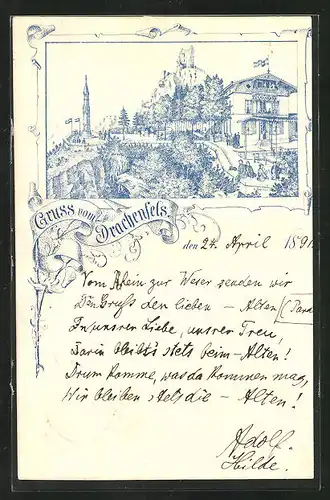 Gruss vom
Drachenfels.
den 24. April 1891.
Vom Rhein zur Weser senden wir
Den Gruß den lieben – Alten (
In unsrer Liebe, unsrer Treu,
Darin bleibt's stets beim – Alten!
Drum komme, was da kommen mag,
Wir bleiben stets die – Alten!
Adolf.
Hilde.